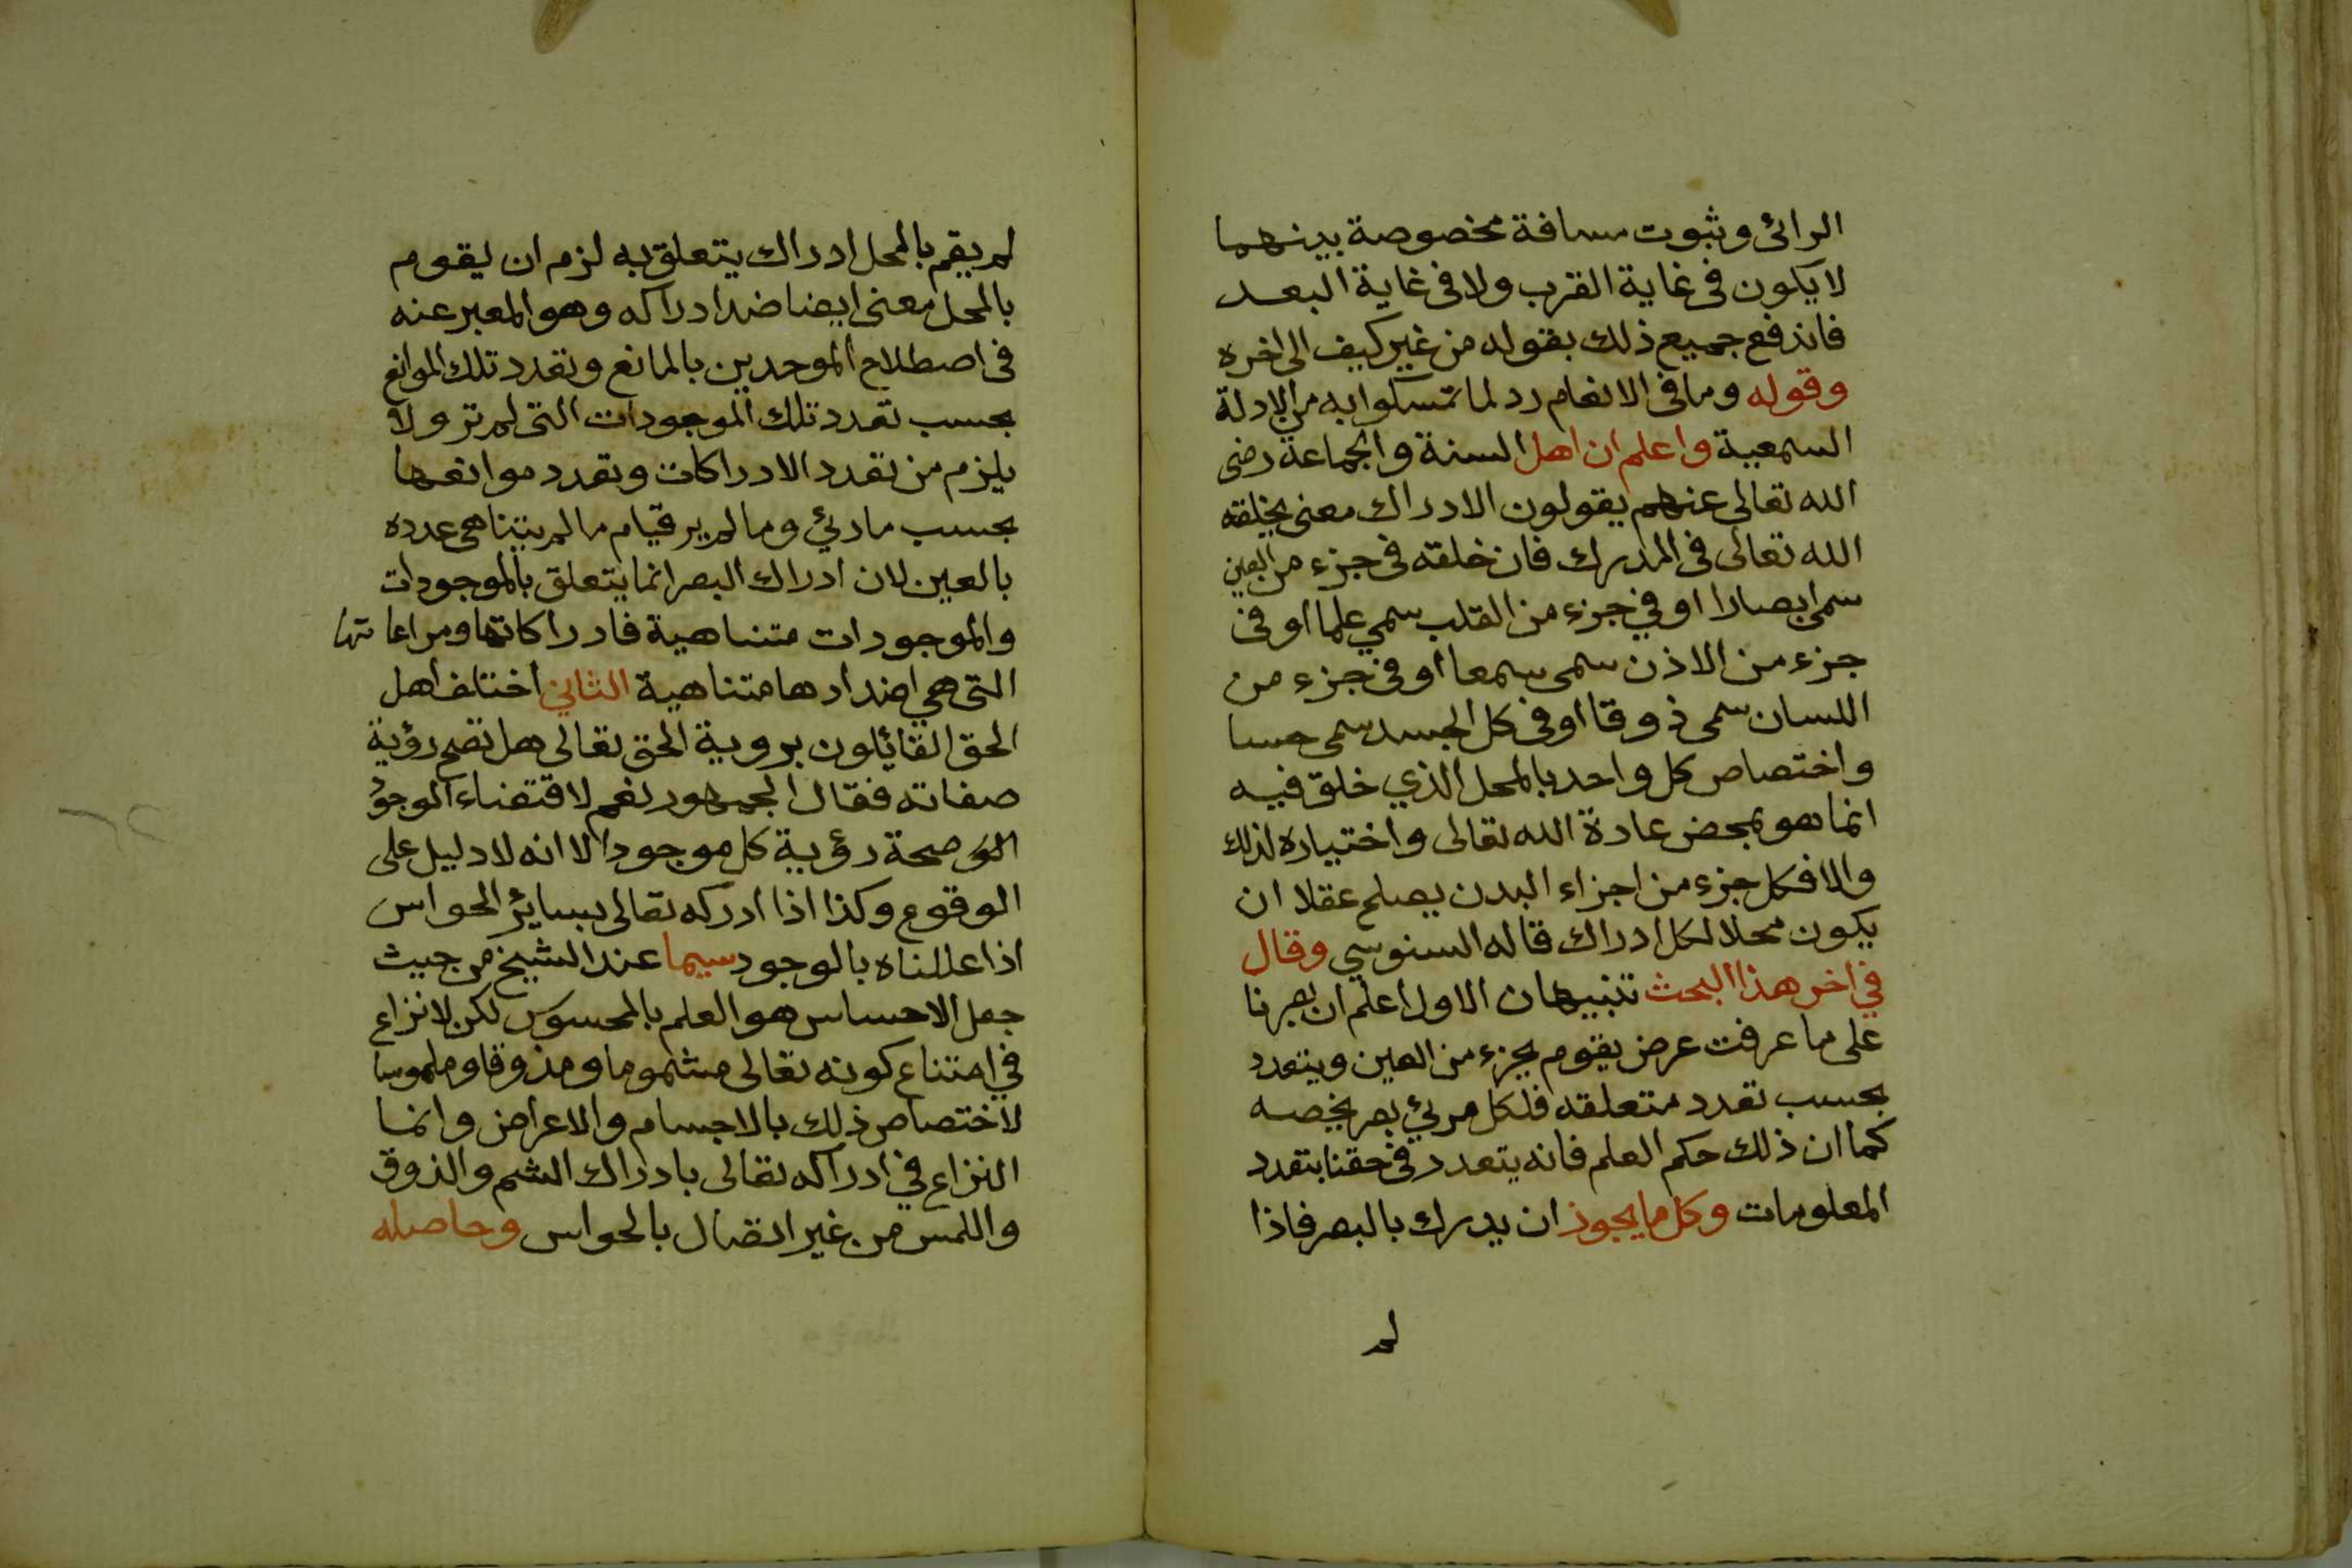 الرائى وثبوت مسافة مخصوصة بينهما
لا يكون فى غاية القرب ولا فى غاية البعد
فاندفع جميع ذلك بقوله من غير كيف الى اخره
وقوله وما فى الانعام رد لما تمسكوا به من الادلة
السمعية واعلم ان اهل السنة والجماعة رضى
الله تعالى عنهم يقولون الادراك معنى يخلقه
الله تعالى فى المدرك فان خلقه فى جزء من العين
سمى ابصارا او في جزء من القلب سمي علما او فى
جزء من الاذن سمى سمعا او فى جزء من
اللسان سمى ذوقا او فى كل الجسد سمى حسا
واختصاص كل واحد بالمحل الذي خلق فيه
انما هو بمحض عادة الله تعالى واختياره لذلك
والا فكل جزء من اجزاء البدن يصلح عقلا ان
يكون محلا لكل ادراك قاله السنوسي وقال
في اخر هذا البحث تنبيهان الاول اعلم ان بصرنا
على ما عرفت عرض يقوم بجزء من العين ويتعدد
بحسب تعدد متعلقه فلكل مرئي بصر يخصه
كما ان ذلك حكم العلم فانه يتعدد فى حقنا بتعدد
المعلومات وكل ما يجوز ان يدرك بالبصر فاذا
لم
لم يقم بالمحل ادراك يتعلق به لزم ان يقوم
بالمحل معنى ايضا ضد ادراكه وهو المعبر عنه
فى اصطلاح الموحدين بالمانع وتعدد تلك الموانع
بحسب تعدد تلك الموجودات التى لم تر ولا
يلزم من تعدد الادراكات وتعدد موانعها
بحسب ما رئي وما لم ير قيام ما لم يتناهى عدده
بالعين لان ادراك البصر انما يتعلق بالموجودات
والموجودات متناهية فادراكاتها ومراعاتها
التى هي اضدادها متناهية الثاني اختلف اهل
الحق القائلون بروية الحق تعالى هل تصح رؤية
صفاته فقال الجمهور نعم لاقتضاء الموجود
صحة رؤية كل موجود الا انه لا دليل على
الوقوع وكذا اذا ادركه تعالى بسائر الحواس
اذا عللناه بالوجود سيما عند الشيخ من حيث
جعل الاحساس هو العلم بالمحسوس لكن لا نزاع
في امتناع كونه تعالى مشموما ومذوقا وملموسا
لاختصاص ذلك بالاجسام والاعراض وانما
النزاع في ادراكه تعالى بادراك الشم والذوق
واللمس من غير اتصال بالحواس وحاصله